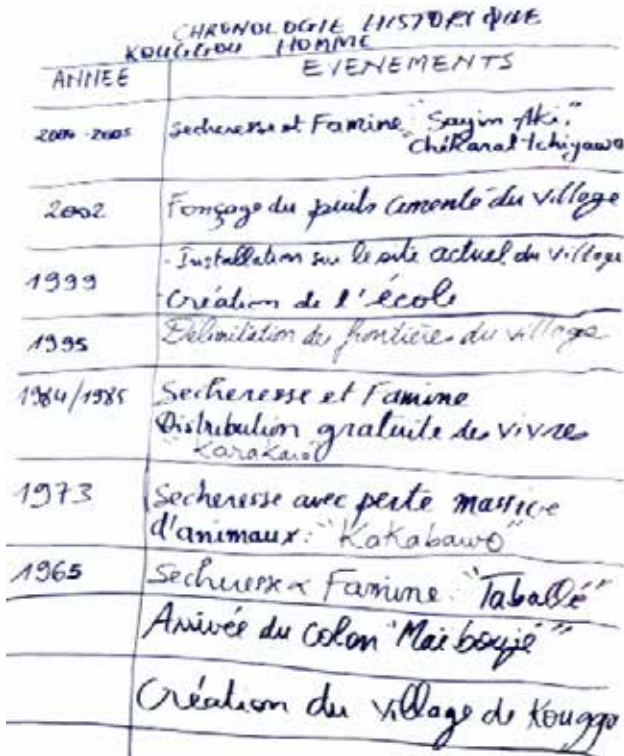 CHRONOLOGIE HISTORIQUE
KOUGGOU HOMME
ANNEE EVENEMENTS
2004-2005 Secheresse et Famine "Sayim Aki."
Chikaral tchiyawa
2002 Fonçage du puits cimenté du village
- Installation sur le site actuel du village
1999
- Création de l'école
1995 Délimitation des frontières du village
1984/1985 Secheresse et Famine
Distribution gratuite des vivres
"Karakara"
1973 Secheresse avec perte massive
d'animaux: "Kakabawo"
1965 Secheresse & Famine "Taballé"
Arrivée du colon "Mai boujé"
Création du village de Kouggo